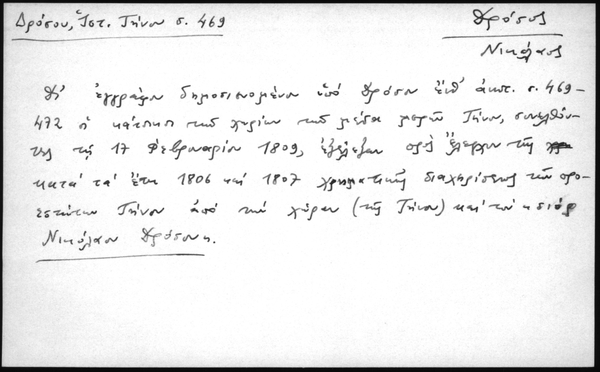 Δρόσου, Ἱστ. Τήνου σ. 469
Δρόσος
Νικόλαος
Δι' ἐγγράφου δημοσιευομένου ὑπό Δρόσου ἔνθ' ἀνωτ. σ. 469-
472 οἱ κάτοικοι τῶν χωρίων τῶν μέσα μερῶν Τήνου, συνελθόν-
τες τῇ 17 Φεβρουαρίου 1809, ἐξέλεξαν πρός ἔλεγχον τῆς
κατά τά ἔτη 1806 καί 1807 χρηματικῆς διαχειρίσεως τῶν προ-
εστώτων Τήνου ἀπό τήν χώραν (τῆς Τήνου) καί τόν σιόρ
Νικόλαον Δρόσον.